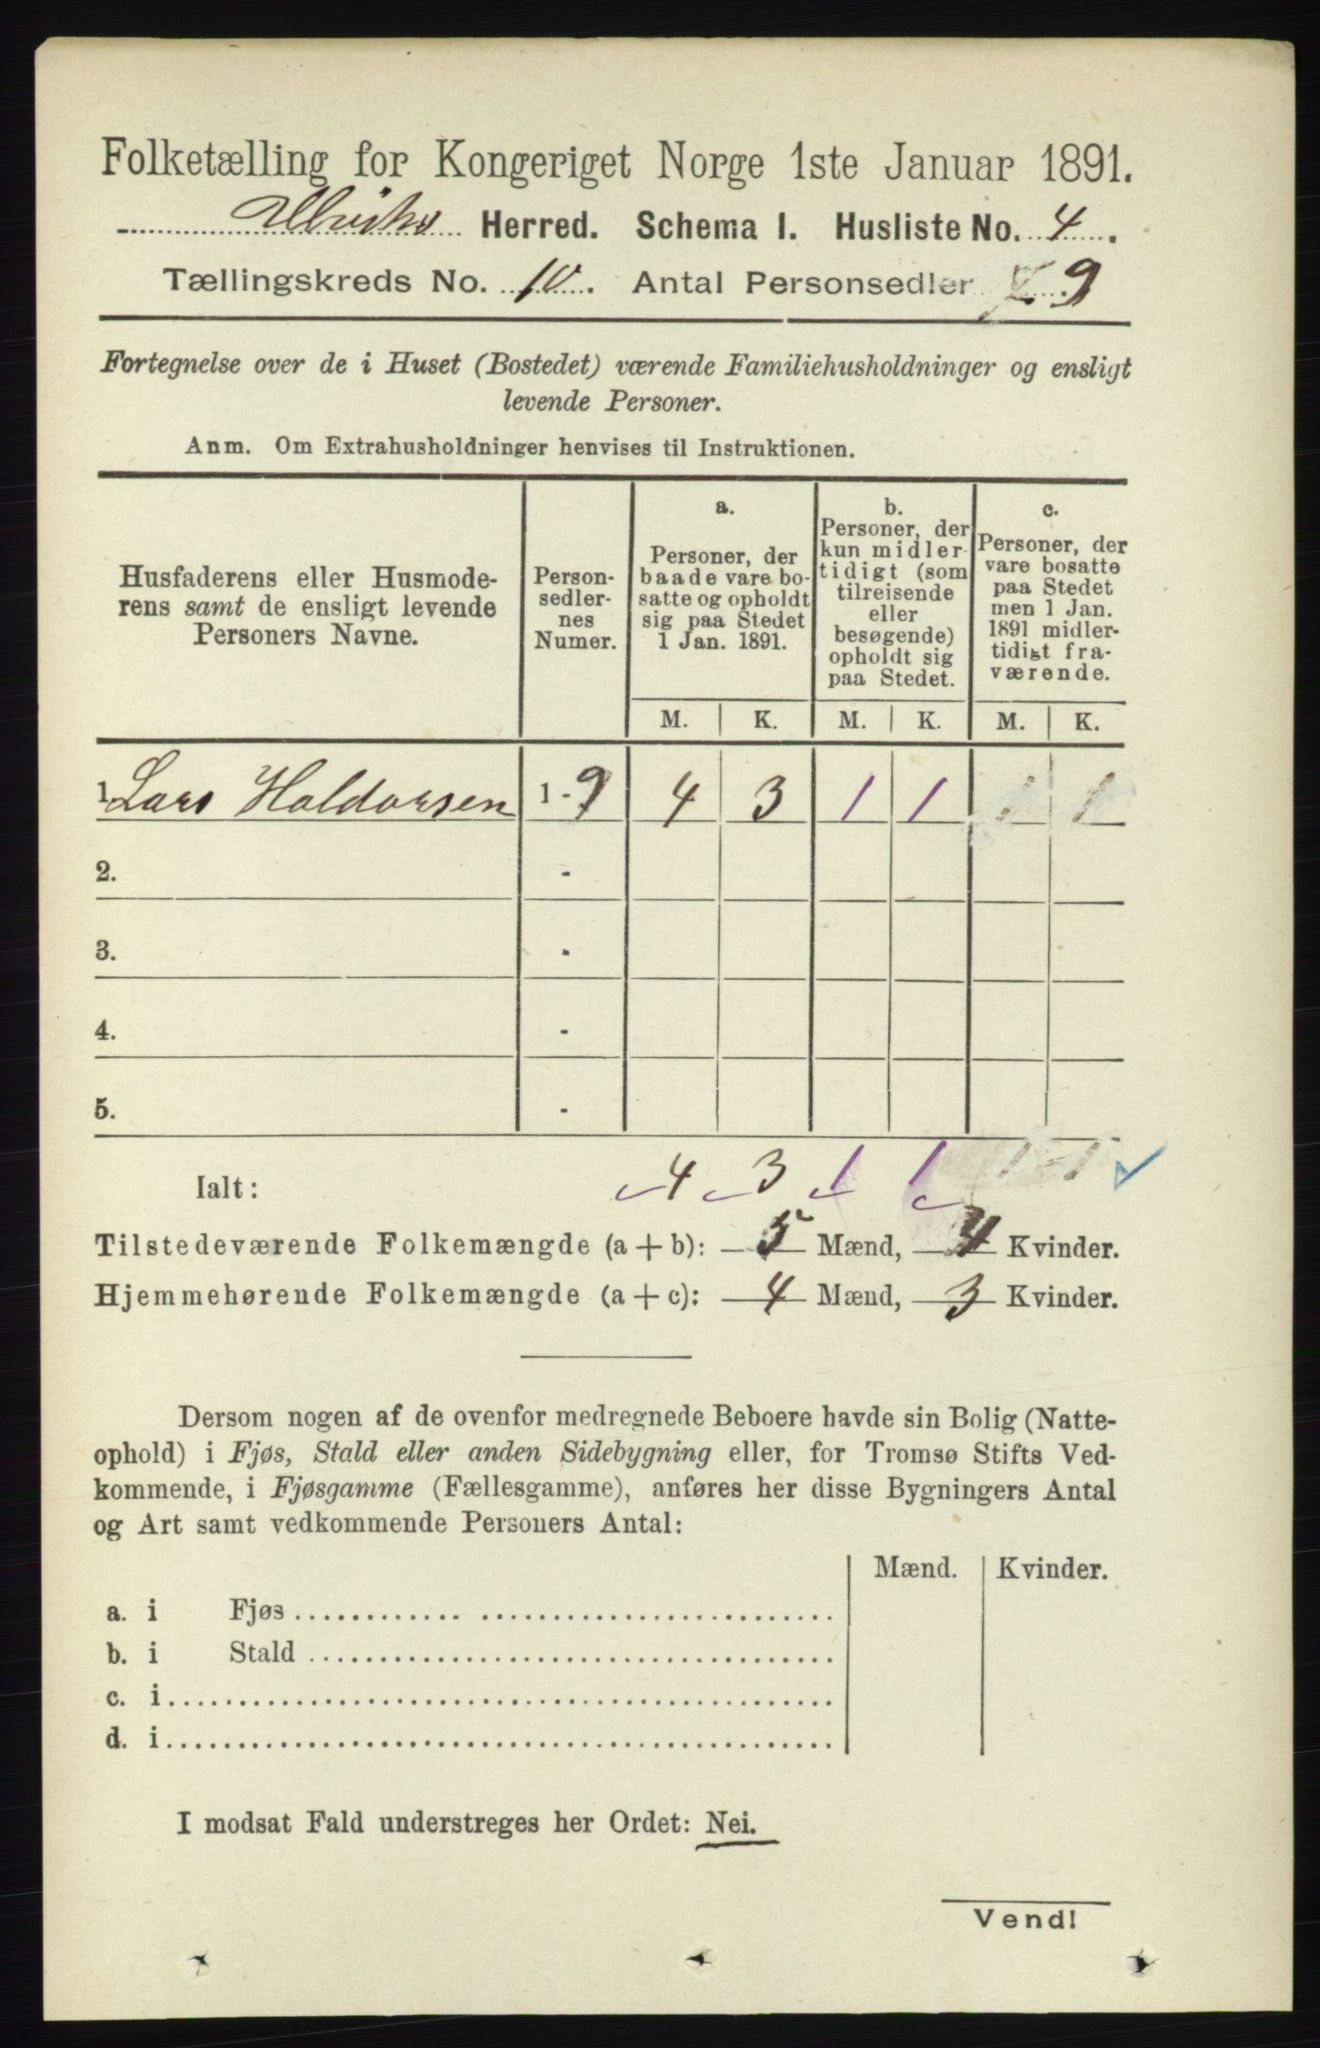 Folketælling for Kongeriget Norge 1ste Januar 1891.
Herred. Schema I. Husliste No. 4.
Tællingskreds No. 10. Antal Personsedler 9
Fortegnelse over de i Huset (Bostedet) værende Familiehusholdninger og ensligt
levende Personer.
Anm. Om Extrahusholdninger henvises til Instruktionen.
Husfaderens eller Husmode-
rens samt de ensligt levende
Personers Navne.
Person-
sedler-
nes
Numer.
a.
Personer, der
baade vare bo-
satte og opholdt
sig paa Stedet
1 Jan. 1891.
b.
Personer, der
kun midler-
tidigt (som
tilreisende
eller
besøgende)
opholdt sig
paa Stedet.
c.
Personer, der
vare bosatte
paa Stedet
men 1 Jan.
1891 midler-
tidigt fra-
værende.
M. K. M. K. M. K.
1 Lars Haldorsen 1-9 4 3 1 1 1 1
2. -
3. -
4. -
5. -
Ialt: 4 3 1 1 1 1
Tilstedeværende Folkemængde (a + b): 5 Mænd, 4 Kvinder.
Hjemmehørende Folkemængde (a + c): 4 Mænd, 3 Kvinder.
Dersom nogen af de ovenfor medregnede Beboere havde sin Bolig (Natte-
ophold) i Fjøs, Stald eller anden Sidebygning eller, for Tromsø Stifts Ved-
kommende, i Fjøsgamme (Fællesgamme), anføres her disse Bygningers Antal
og Art samt vedkommende Personers Antal:
Mænd. Kvinder.
a. i Fjøs
b. i Stald
c. i
d. i
I modsat Fald understreges her Ordet: Nei.
Vend!